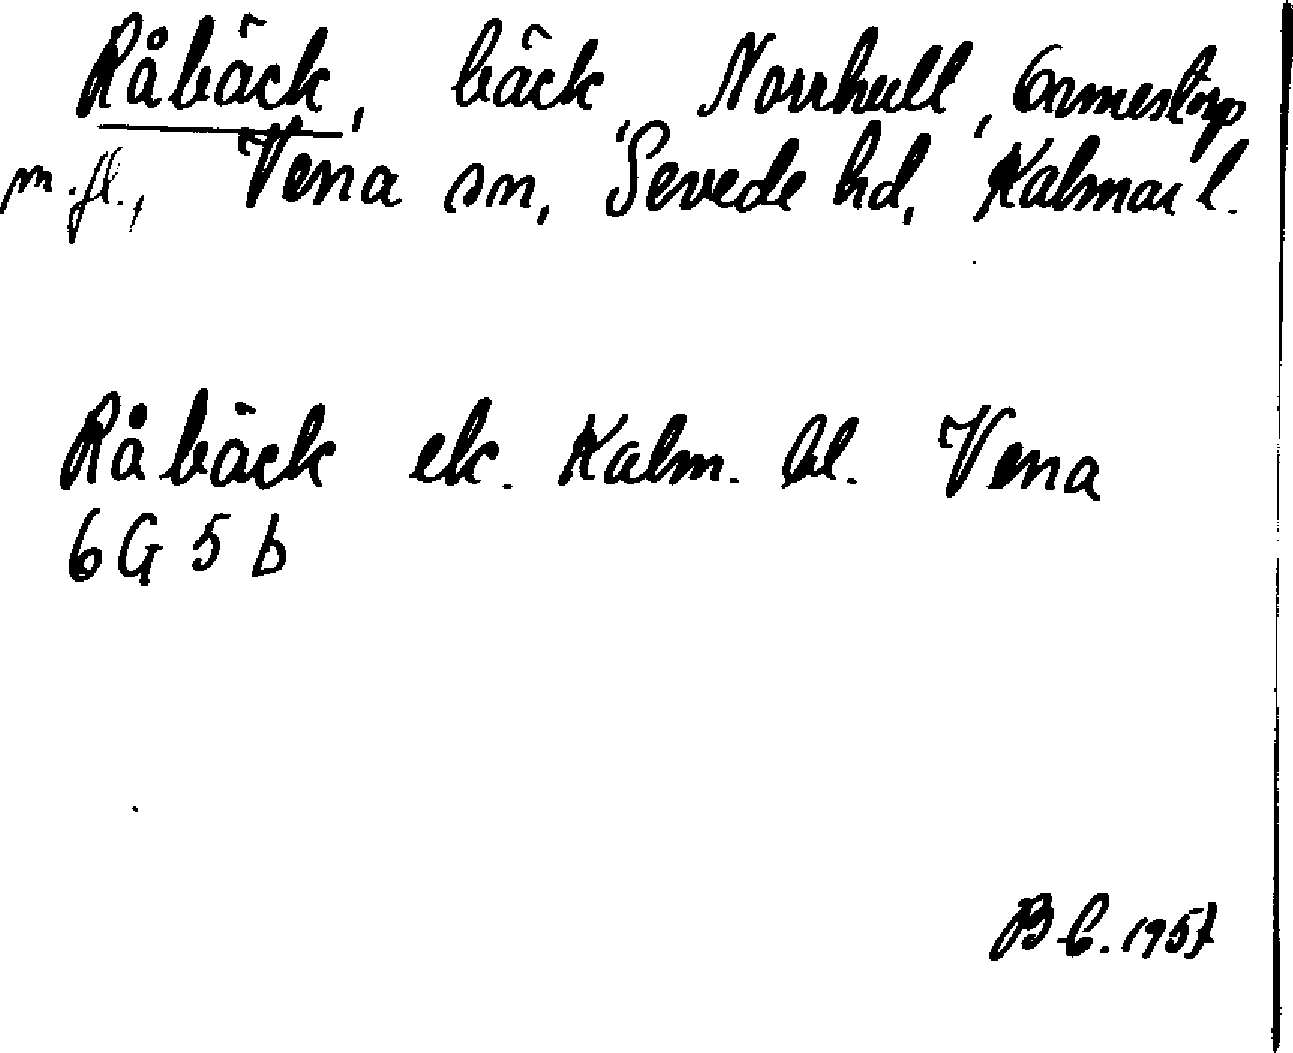 Råbäck, bäck, Norrhult, Ormestorp
m.fl., Vena sn, Sevede hd, Kalmar l.
Råbäck ek. Kalm. bl. Vena
6G 5 b
B-C. 1957